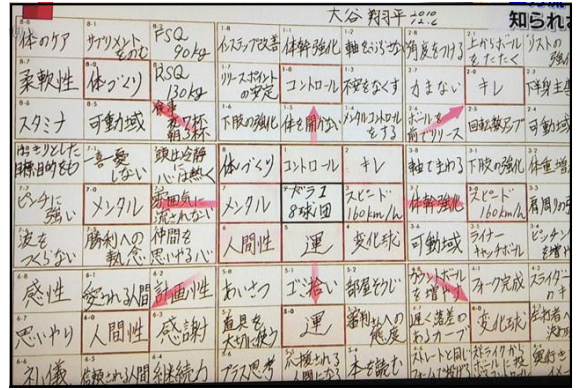 大谷翔平 2010 12.6
知られざ
8-8 8-1 8-2
体のケア サプリメントをのむ FSQ 90kg インステップ改善 体幹強化 軸をぶらさない 角度をつける 上からボールをたたく リストの強化
8-7 8-0 8-3
柔軟性 体づくり RSQ 130kg リリースポイントの安定 コントロール 不安をなくす 力まない キレ 下半身主導
8-6 8-5
スタミナ 可動域 食事 夜7杯 朝3杯 下肢の強化 体を開かない メンタルコントロールをする ボールを前でリリース 回転数アップ 可動域
はっきりとした目標、目的をもつ 一喜一憂しない 頭は冷静に心は熱く 体づくり コントロール キレ 軸でまわる 下肢の強化 体重増加
ピンチに強い メンタル 雰囲気に流されない メンタル ドラ1 8球団 スピード 160km/h 体幹強化 スピード 160km/h 肩周りの強化
波をつくらない 勝利への執念 仲間を思いやる心 人間性 運 変化球 可動域 ライナーキャッチボール ピッチングを増やす
感性 愛される人間 計画性 あいさつ ゴミ拾い 部屋そうじ カウントボールを増やす フォーク完成 スライダーのキレ
思いやり 人間性 感謝 道具を大切に使う 運 審判さんへの態度 遅く落差のあるカーブ 変化球 左打者への決め球
礼儀 信頼される人間 継続力 プラス思考 応援される人間になる 本を読む ストレートと同じフォームで投げる ストライクからボールに投げる 奥行きを